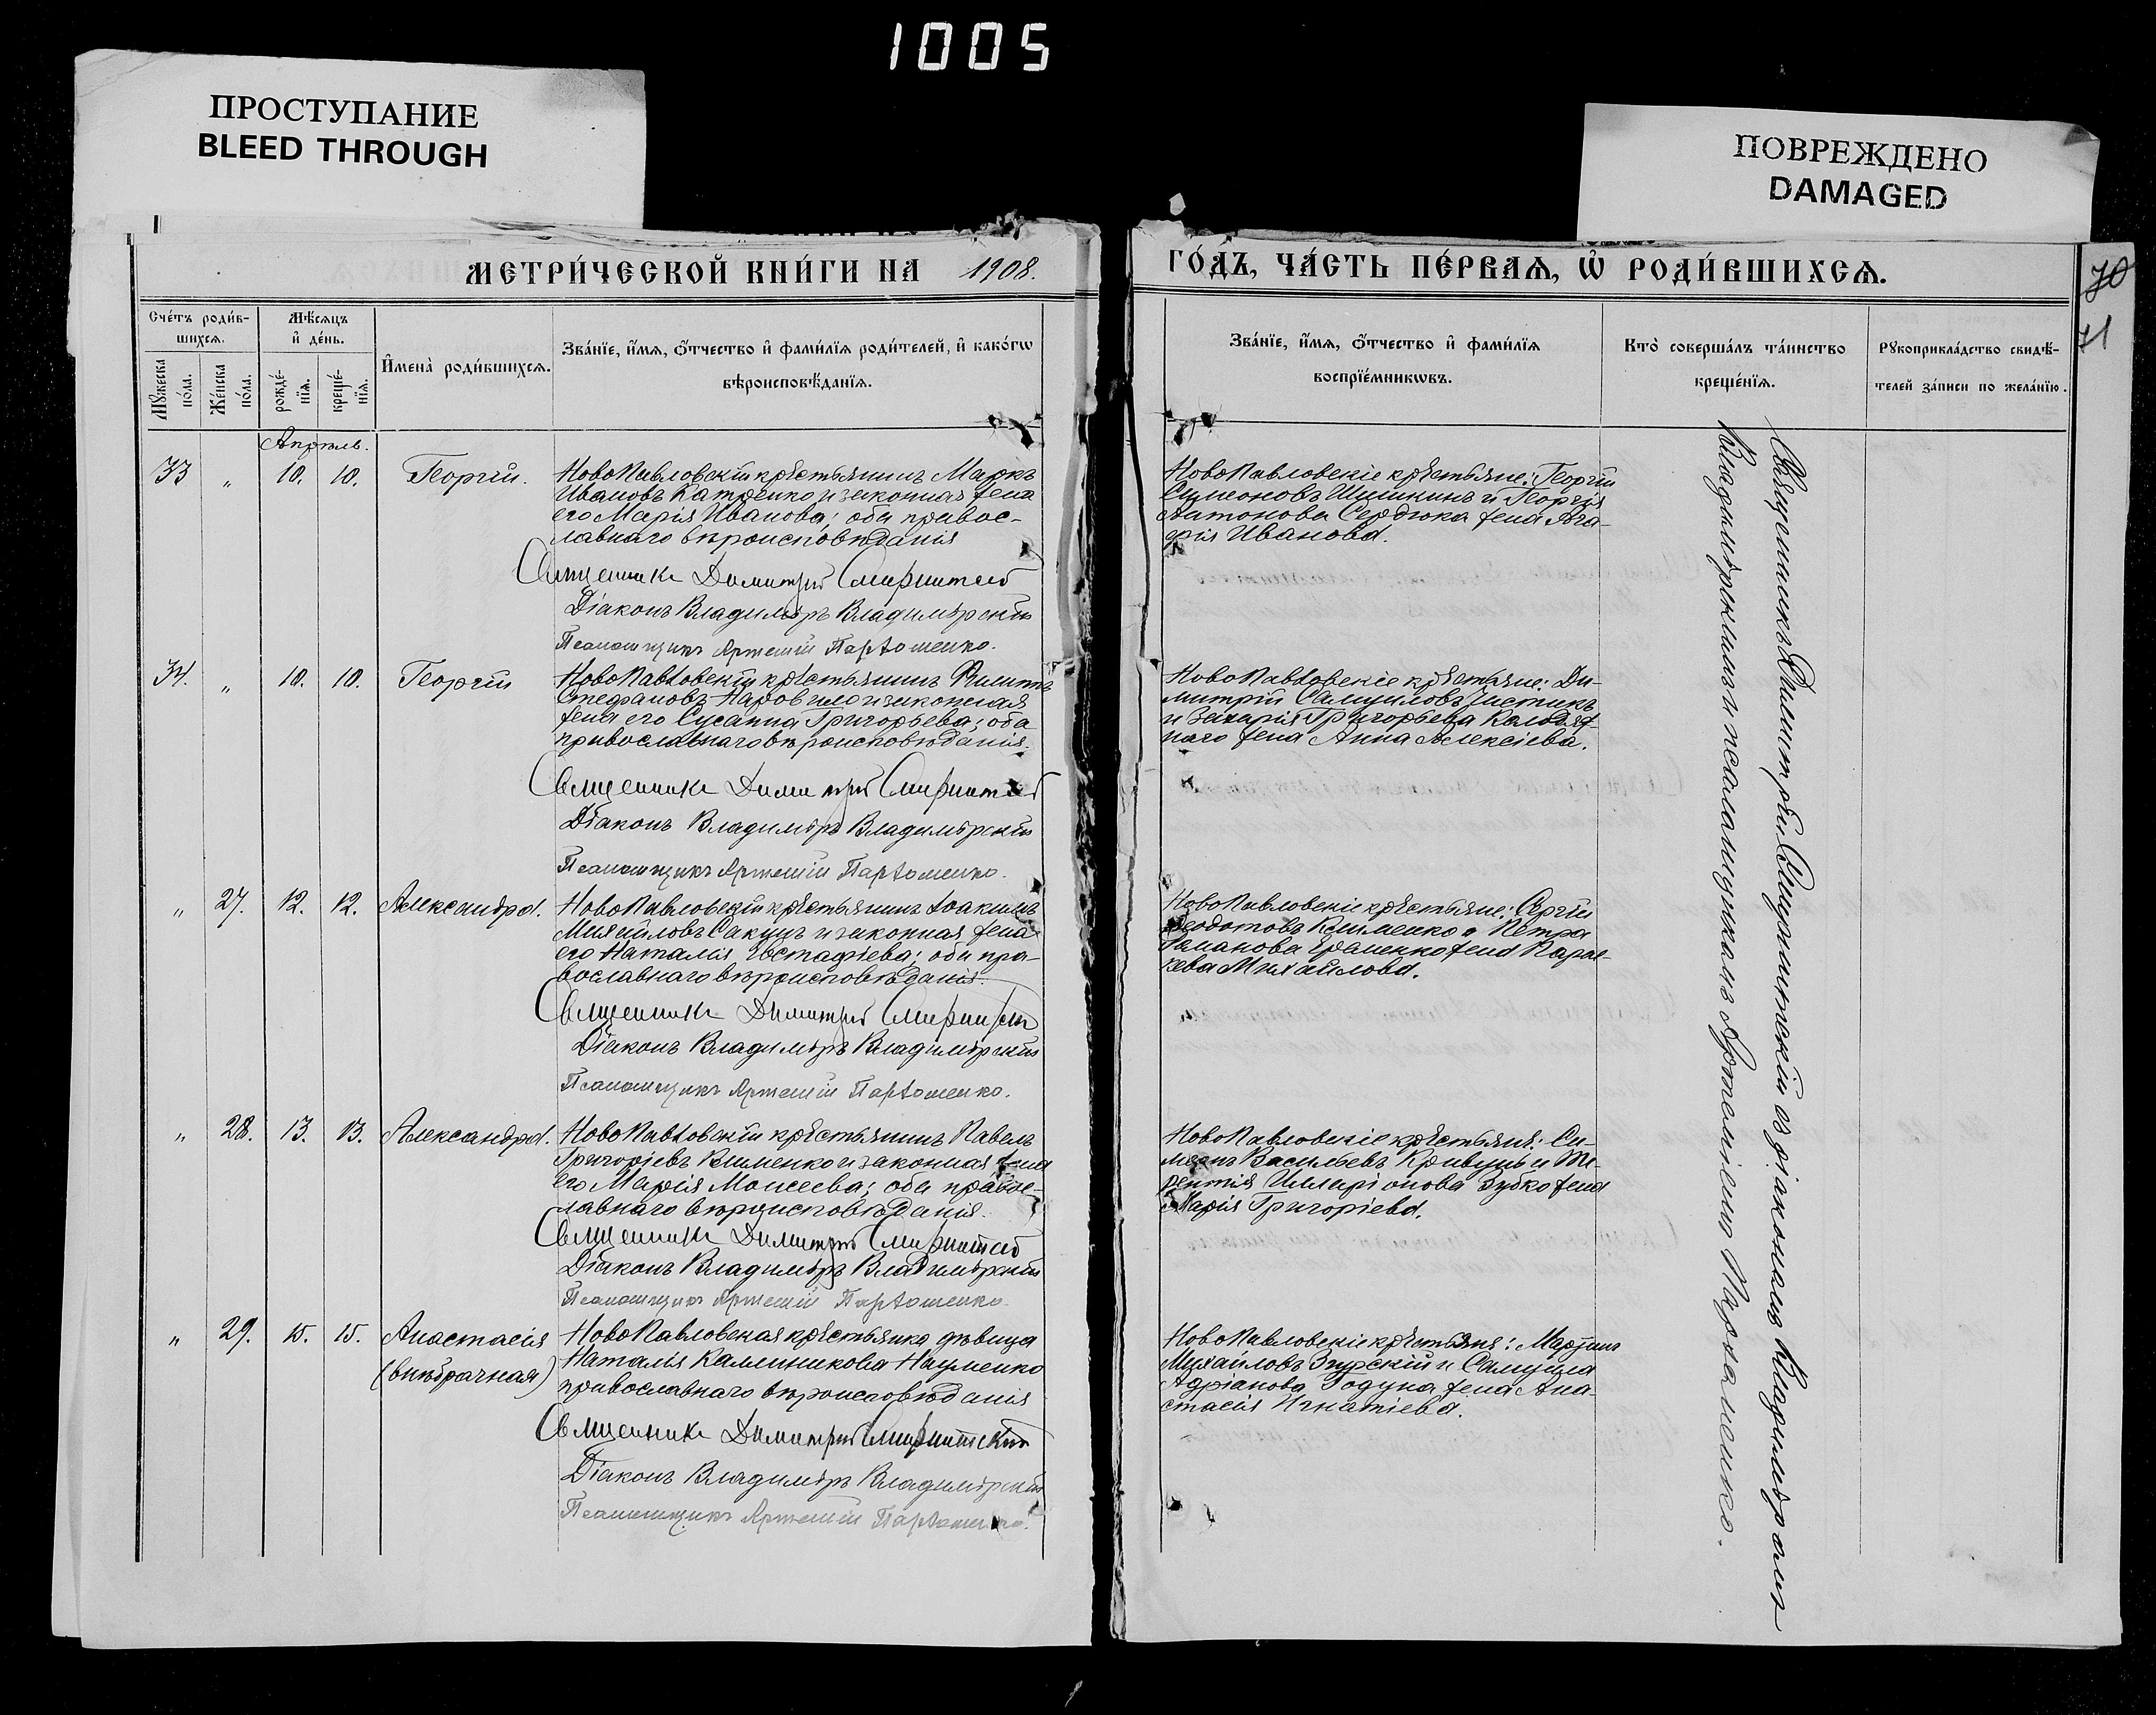 1005
ПРОСТУПАНИЕ
BLEED THROUGH
ПОВРЕЖДЕНО
DAMAGED
МЕТРИ́ЧЕСКОЙ КНИ́ГИ НА 1908.
ГО́ДЪ, ЧА́СТЬ ПЕ́РВАѦ, Ѿ РОДИ́ВШИХСѦ.
70
71
Сче́тъ роди́в-
шихсѧ.
Мѣ́сѧцъ
и҆ де́нь.
Мꙋжеска
по́ла.
Же́нска
по́ла.
рожде́-
нїѧ.
креще́-
нїѧ.
И҆мена̀ роди́вшихсѧ.
Зва́нїе, и҆́мѧ, ѻ҆́тчество и҆ фами́лїѧ роди́телей, и҆ како́гѡ
вѣроисповѣ́данїѧ.
Зва́нїе, и҆́мѧ, ѻ҆́тчество и҆ фами́лїѧ
воспрїе́мникѡвъ.
Кто̀ соверша́лъ та́инство
креще́нїѧ.
Рꙋкоприкла́дство свидѣ́-
телей за́писи по жела́нїю.
Апрѣль.
33 " 10. 10. Георгій.
НовоПавловскій крестьянинъ Маркъ
Ивановъ Катренко и законная жена
его Марія Иванова; оба правос-
лавнаго вѣроисповѣданія
Священникъ Димитрій
Діаконъ Владиміръ Владимірскій
Псаломщикъ Артемій Пархоменко.
НовоПавловскіе крестьяне: Георгій
Симеоновъ Шишкинъ и Георгія
Антонова Сердюка жена Ага-
фія Иванова.
34. " 10. 10. Георгій
НовоПавловскій крестьянинъ Филиппъ
Стефановъ и законная
жена его Сусанна Григорьева; оба
православнаго вѣроисповѣданія.
Священникъ Димитрій
Діаконъ Владиміръ Владимірскій
Псаломщикъ Артемій Пархоменко.
НовоПавловскіе крестьяне: Ди-
митрій Самуиловъ Чистикъ
и Захарія Григорьева Колодяж-
наго жена Анна Алексіева.
" 27. 12. 12. Александра.
НовоПавловскій крестьянинъ Іоакимъ
Михаиловъ Сакунъ и законная жена
его Наталія Евстафіева; оба пра-
вославнаго вѣроисповѣданія.
Священникъ Димитрій
Діаконъ Владиміръ Владимірскій
Псаломщикъ Артемій Пархоменко.
НовоПавловскіе крестьяне: Сергій
Ѳеодотовъ Клименко и Петра
жена Парас-
кева Михаилова.
" 28. 13. 13. Александра.
НовоПавловскій крестьянинъ Павелъ
Григоріевъ Клименко и законная жена
его Марія Моисеева; оба правос-
лавнаго вѣроисповѣданія.
Священникъ Димитрій
Діаконъ Владиміръ Владимірскій
Псаломщикъ Артемій Пархоменко.
НовоПавловскіе крестьяня: Си-
меонъ Васильевъ Кривунь и Те-
рентія Илларіонова Зубко жена
Марія Григоріева.
" 29. 15. 15. Анастасія
(внѣбрачная)
НовоПавловская крестьянка дѣвица
Наталія Каллиникова Науменко
православнаго вѣроисповѣданія
Священникъ Димитрій
Діаконъ Владиміръ Владимірскій
Псаломщикъ Артемій Пархоменко.
НовоПавловскіе крестьяня: Мартинъ
Михаиловъ Згурскій и Самуила
Адріанова Годуна жена Ана-
стасія Игнатіева.
Священникъ Димитрій съ діакономъ Владиміромъ
Владимірскимъ и псаломщикомъ Артеміемъ Пархоменко.